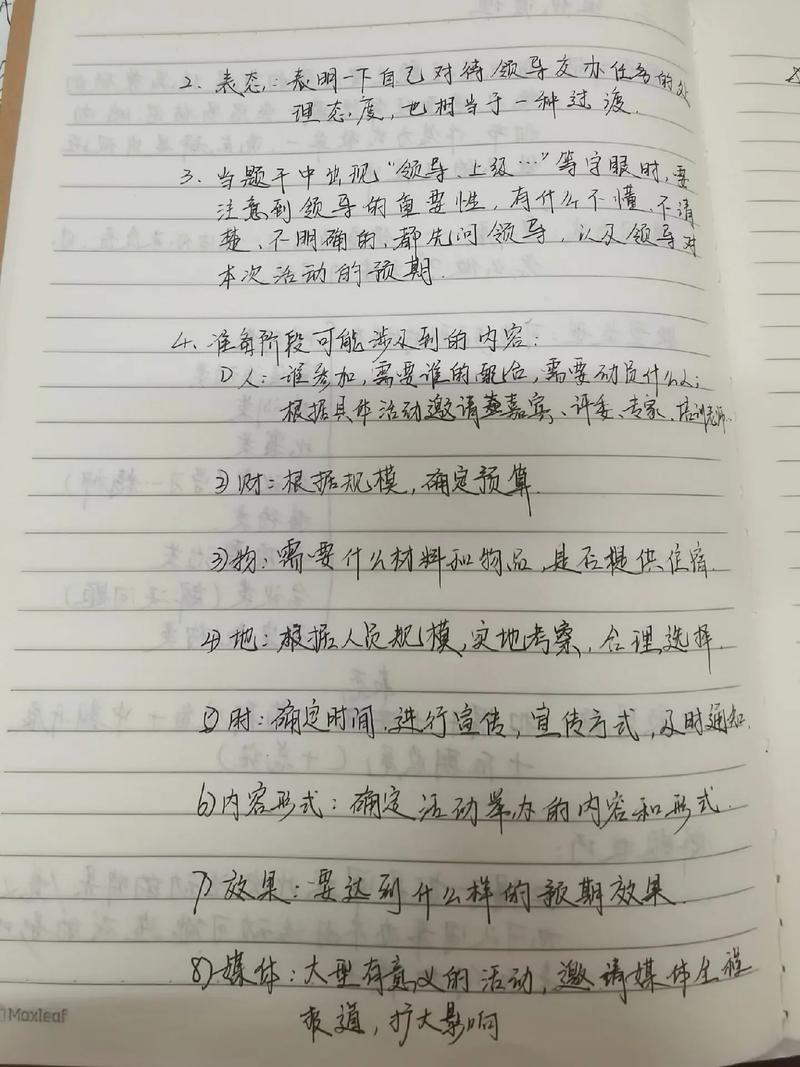 2、表态：表明一下自己对待领导交办任务的处
理态度，也相当于一种过渡.
3、当题干中出现“领导、上级…”等字眼时，要
注意到领导的重要性，有什么不懂、不清
楚、不明确的，都先问领导，以及领导对
本次活动的预期.
4、准备阶段可能涉及到的内容：
1)人：谁参加，需要谁的配合，需要动员什么人；
根据具体活动邀请嘉宾、评委、专家、培训老师.
2)财：根据规模，确定预算.
3)物：需要什么材料和物品，是否提供住宿.
4)地：根据人员规模，实地考察，合理选择.
5)时：确定时间，进行宣传，宣传方式，及时通知.
6)内容形式：确定活动举办的内容和形式.
7)效果：要达到什么样的预期效果.
8)媒体：大型有意义的活动，邀请媒体全程
报道，扩大影响
Maxleaf